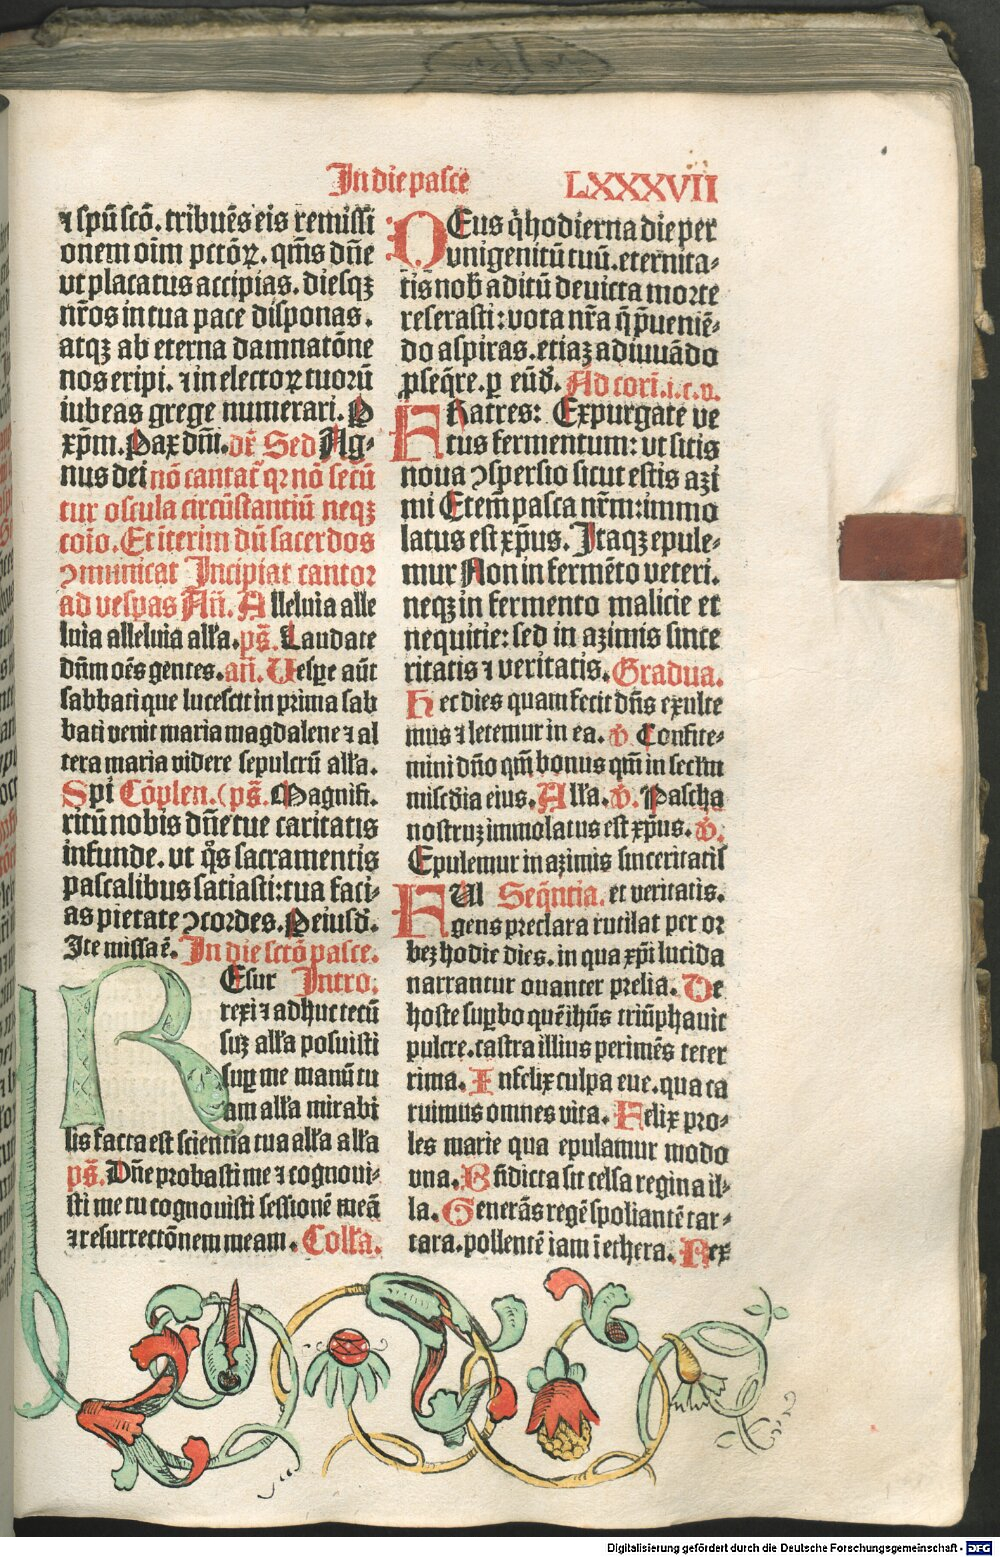 In die pasce LXXXVII
⁊ spũ scõ. tribuẽs eis remissi
onem oim pctõꝝ. qm̃s dñe
vt placatus accipias. diesqꝫ
nr̃os in tua pace disponas.
atqꝫ ab eterna damnatõne
nos eripi. ⁊ in electoꝝ tuorũ
iubeas grege numerari. P
xp̃m. Pax dñi. dr̃ Sed Ag⸗
nus dei nõ cantat᷑ qꝛ nõ secũ
tur oscula circũstantiũ neqꝫ
cõio. Et iterim dũ sacerdos
ꝯmunicat Incipiat cantor
ad vesp̃as Añ. Alleluia alle
luia alleluia all'a. ps̃. Laudate
dñm oẽs gentes. añ. Uesꝑe aũt
sabbati que lucescit in prima sab
bati venit maria magdalene ⁊ al
tera maria videre sepulcrũ all'a.
Spi Cõplen. (ps̃. Magnifi.
ritũ nobis dñe tue caritatis
infunde. vt q̃s sacramentis
pascalibus satiasti: tua faci⸗
as pietate ꝯcordes. P eiusd̃.
Ite missa ẽ. In die sctõ pasce.
REsur Intro.
rexi ⁊ adhuc tecũ
suꝫ all'a posuisti
suꝑ me manũ tu
am all'a mirabi
lis facta est scientia tua all'a all'a
ps̃. Dñe probasti me ⁊ cognoui⸗
sti me tu cognouisti sessionẽ meã
⁊ resurrectõnem meam. Coll'a.
DEus q̇ hodierna die per
vnigenitũ tuũ. eternita⸗
tis nob̃ aditũ deuicta morte
reserasti: vota nr̃a q̃ p̃ueniẽ⸗
do aspiras. etiaꝫ adiuuãdo
ꝓseq̃re. ꝑ eũd̃. Ad cori. i. c. v.
FRatres: Expurgate ve
tus fermentum: vt sitis
noua ꝯspersio sicut estis azi
mi Etem̃ pasca nr̃m: immo
latus est xp̃us. Itaqꝫ epule⸗
mur Non in fermẽto veteri.
neqꝫ in fermento malicie et
nequitie: sed in azimis since
ritatis ⁊ veritatis. Gradua.
Hec dies quam fecit dñs exulte
mus ⁊ letemur in ea. ꝟ. Confite⸗
mini dño qm̃ bonus qm̃ in secl'm
misc̃dia eius. All'a. ꝟ. Pascha
nostruꝫ immolatus est xp̃us. ꝟ.
Epulemur in azimis sinceritatis
FUl Seq̃ntia. et veritatis.
gens preclara rutilat per or
beꝫ hodie dies. in qua xp̃i lucida
narrantur ouanter prelia. De
hoste suꝑbo quẽ ih̃us triũphauit
pulcre. castra illius perimẽs teter
rima. Infelix culpa eue. qua ca
ruimus omnes vita. Felix pro⸗
les marie qua epulamur modo
vna. Bñdicta sit celsa regina il⸗
la. Generãs regẽ spoliantẽ tar⸗
tara. pollentẽ iam ĩ ethera. Rex
Digitalisierung gefördert durch die Deutsche Forschungsgemeinschaft - DFG